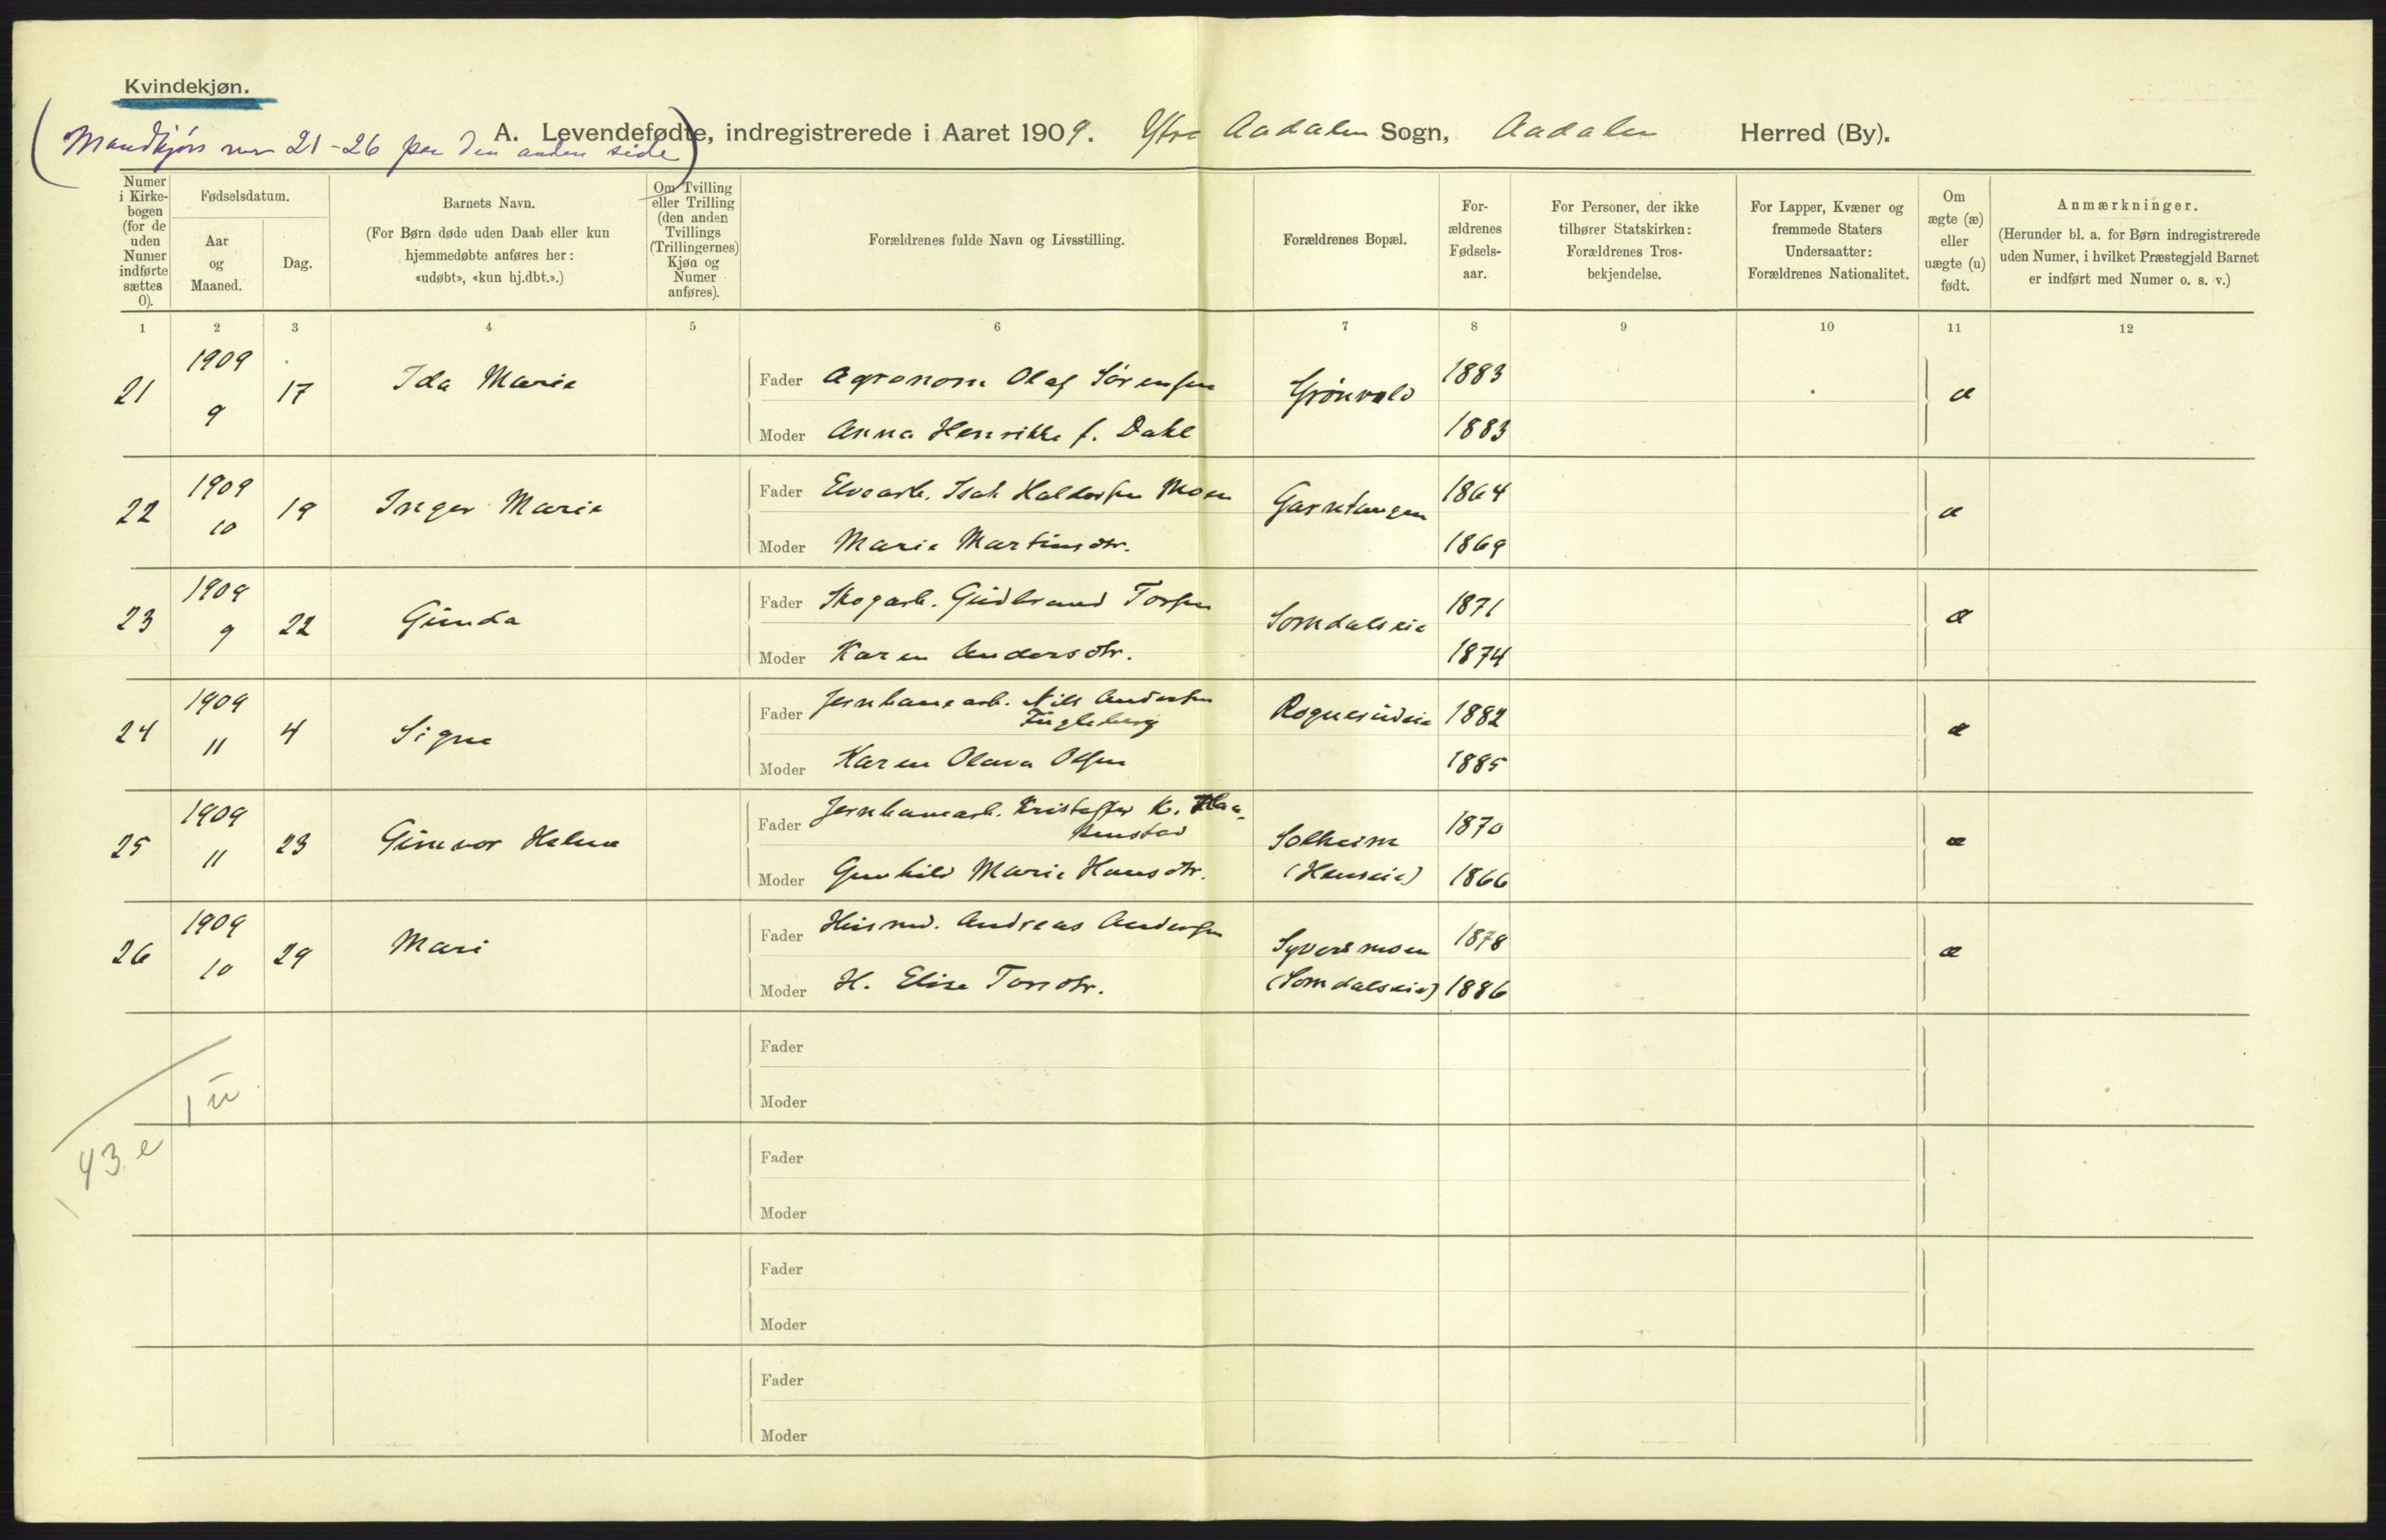 Kvindekjøn.
(Mandkjøn nr 21-26 paa den anden side)
A. Levendefødte, indregistrerede i Aaret 1909. Ytre Aadalen Sogn, Aadalen Herred (By).
Numer i Kirkebogen (for de uden Numer indførte sættes 0).
Fødselsdatum.
Aar og Maaned.
Dag.
Barnets Navn.
(For Børn døde uden Daab eller kun hjemmedøbte anføres her: «udøbt», «kun hj.dbt.».)
Om Tvilling eller Trilling (den anden Tvillings (Trillingernes) Kjøn og Numer anføres).
Forældrenes fulde Navn og Livsstilling.
Forældrenes Bopæl.
For-ældrenes Fødsels-aar.
For Personer, der ikke tilhører Statskirken: Forældrenes Tros-bekjendelse.
For Lapper, Kvæner og fremmede Staters Undersaatter: Forældrenes Nationalitet.
Om ægte (æ) eller uægte (u) født.
Anmærkninger.
(Herunder bl. a. for Børn indregistrerede uden Numer, i hvilket Præstegjeld Barnet er indført med Numer o. s. v.)
1 2 3 4 5 6 7 8 9 10 11 12
21 1909 9 17 Ida Marie Fader Agronom Olaf Sørensen Grönvold 1883 æ
Moder Anna Henrikke f. Dahl 1883
22 1909 10 19 Inger Marie Fader Elvearb. Isak Haldorsen Moen Garntangen 1864 æ
Moder Marie Martinsdtr. 1869
23 1909 9 22 Gunda Fader Skogarb. Gudbrand Torsen Somdalseie 1871 æ
Moder Karen Andersdtr. 1874
24 1909 11 4 Signe Fader Jernbanearb. Nils Andersen
Fugleberg 1882 æ
Moder Karen Olava Olsen 1885
25 1909 11 23 Gunvor Helene Fader Jernbanearb. Kristoffer K. Haa-
kenstad Solheim 1870 æ
Moder Gunhild Marie Hansdtr. (Henseie) 1866
26 1909 10 29 Mari Fader Husmd. Andreas Andersen Syversmoen 1878 æ
Moder H. Elise Torsdtr. (Somdalseie) 1886
Fader
1 u
Moder
43 e
Fader
Moder
Fader
Moder
Fader
Moder